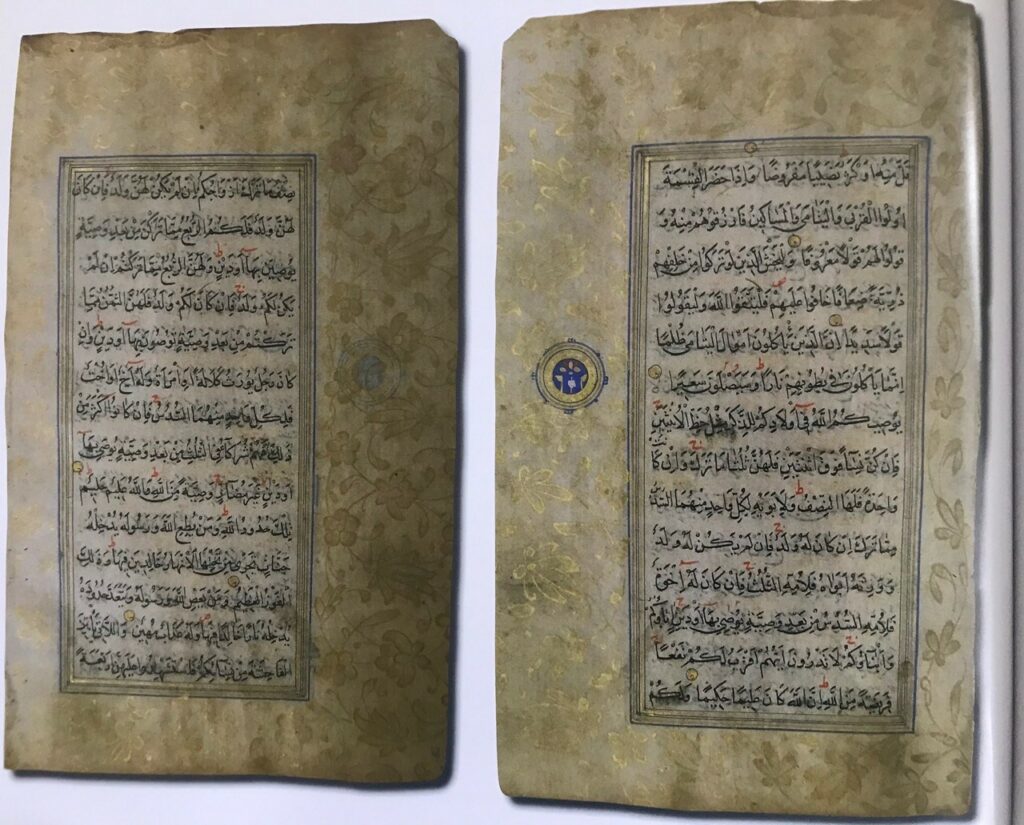 قَلَّ مِنْهُ اَوْ كَثُرَ نَصِيبًا مَفْرُوضًا وَاِذَا حَضَرَ الْقِسْمَةَ
اُولُوا الْقُرْبٰى وَالْيَتَامٰى وَالْمَسَاكِينُ فَارْزُقُوهُمْ مِنْهُ وَ
قُولُوا لَهُمْ قَوْلًا مَعْرُوفًا وَلْيَخْشَ الَّذِينَ لَوْ تَرَكُوا مِنْ خَلْفِهِمْ
ذُرِّيَّةً ضِعَافًا خَافُوا عَلَيْهِمْ فَلْيَتَّقُوا اللّٰهَ وَلْيَقُولُوا
قَوْلًا سَدِيدًا اِنَّ الَّذِينَ يَأْكُلُونَ اَمْوَالَ الْيَتَامٰى ظُلْمًا
اِنَّمَا يَأْكُلُونَ فِي بُطُونِهِمْ نَارًا وَسَيَصْلَوْنَ سَعِيرًا
يُوصِيكُمُ اللّٰهُ فِي اَوْلَادِكُمْ لِلذَّكَرِ مِثْلُ حَظِّ الْاُنْثَيَيْنِ
فَاِنْ كُنَّ نِسَاءً فَوْقَ اثْنَتَيْنِ فَلَهُنَّ ثُلُثَا مَا تَرَكَ وَاِنْ كَانَتْ
وَاحِدَةً فَلَهَا النِّصْفُ وَلِاَبَوَيْهِ لِكُلِّ وَاحِدٍ مِنْهُمَا السُّدُسُ
مِمَّا تَرَكَ اِنْ كَانَ لَهُ وَلَدٌ فَاِنْ لَمْ يَكُنْ لَهُ وَلَدٌ
وَوَرِثَهُ اَبَوَاهُ فَلِاُمِّهِ الثُّلُثُ فَاِنْ كَانَ لَهُ اِخْوَةٌ
فَلِاُمِّهِ السُّدُسُ مِنْ بَعْدِ وَصِيَّةٍ يُوصِي بِهَا اَوْ دَيْنٍ اٰبَاؤُكُمْ
وَاَبْنَاؤُكُمْ لَا تَدْرُونَ اَيُّهُمْ اَقْرَبُ لَكُمْ نَفْعًا
فَرِيضَةً مِنَ اللّٰهِ اِنَّ اللّٰهَ كَانَ عَلِيمًا حَكِيمًا وَلَكُمْ
نِصْفُ مَا تَرَكَ اَزْوَاجُكُمْ اِنْ لَمْ يَكُنْ لَهُنَّ وَلَدٌ فَاِنْ كَانَ
لَهُنَّ وَلَدٌ فَلَكُمُ الرُّبُعُ مِمَّا تَرَكْنَ مِنْ بَعْدِ وَصِيَّةٍ
يُوصِينَ بِهَا اَوْ دَيْنٍ وَلَهُنَّ الرُّبُعُ مِمَّا تَرَكْتُمْ اِنْ لَمْ
يَكُنْ لَكُمْ وَلَدٌ فَاِنْ كَانَ لَكُمْ وَلَدٌ فَلَهُنَّ الثُّمُنُ مِمَّا
تَرَكْتُمْ مِنْ بَعْدِ وَصِيَّةٍ تُوصُونَ بِهَا اَوْ دَيْنٍ وَاِنْ
كَانَ رَجُلٌ يُورَثُ كَلَالَةً اَوِ امْرَاَةٌ وَلَهُ اَخٌ اَوْ اُخْتٌ
فَلِكُلِّ وَاحِدٍ مِنْهُمَا السُّدُسُ فَاِنْ كَانُوا اَكْثَرَ مِنْ
ذٰلِكَ فَهُمْ شُرَكَاءُ فِي الثُّلُثِ مِنْ بَعْدِ وَصِيَّةٍ يُوصٰى بِهَا
اَوْ دَيْنٍ غَيْرَ مُضَارٍّ وَصِيَّةً مِنَ اللّٰهِ وَاللّٰهُ عَلِيمٌ حَلِيمٌ
تِلْكَ حُدُودُ اللّٰهِ وَمَنْ يُطِعِ اللّٰهَ وَرَسُولَهُ يُدْخِلْهُ
جَنَّاتٍ تَجْرِي مِنْ تَحْتِهَا الْاَنْهَارُ خَالِدِينَ فِيهَا وَذٰلِكَ
الْفَوْزُ الْعَظِيمُ وَمَنْ يَعْصِ اللّٰهَ وَرَسُولَهُ وَيَتَعَدَّ حُدُودَهُ
يُدْخِلْهُ نَارًا خَالِدًا فِيهَا وَلَهُ عَذَابٌ مُهِينٌ وَاللَّاتِي يَأْتِينَ
الْفَاحِشَةَ مِنْ نِسَائِكُمْ فَاسْتَشْهِدُوا عَلَيْهِنَّ اَرْبَعَةً